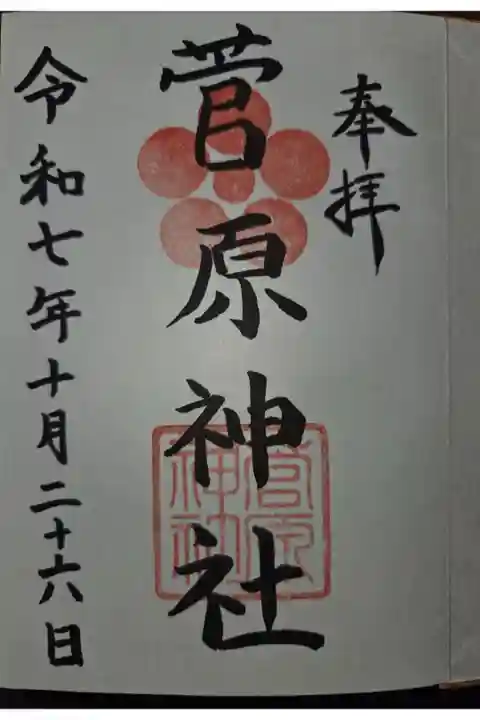 奉拝
菅原神社
令和七年十月二十六日